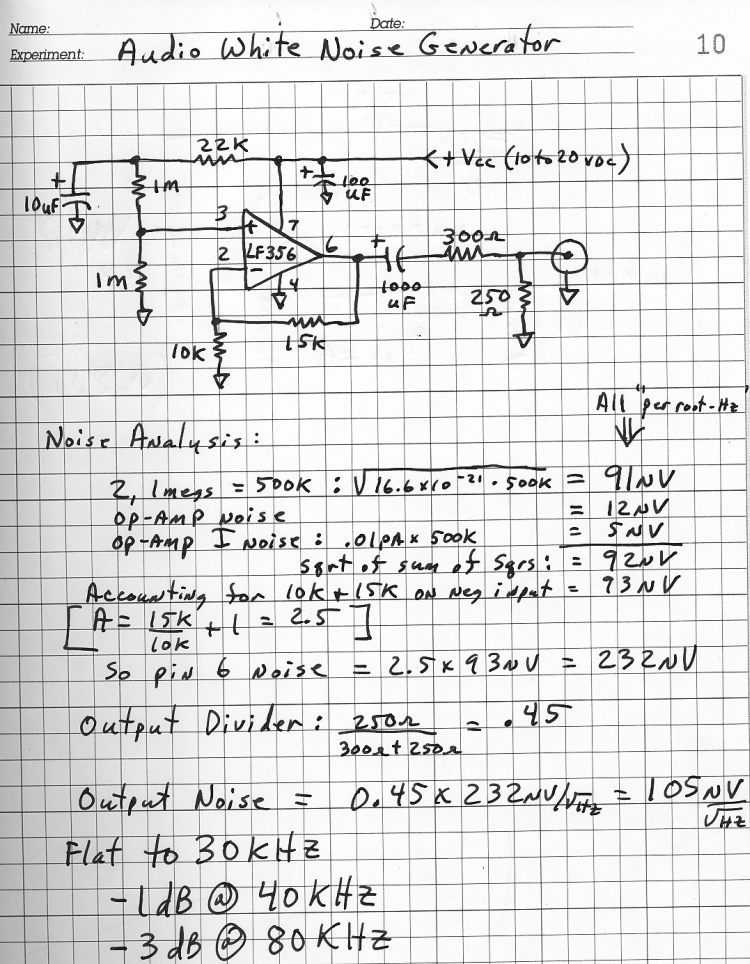 Name: Date:
Experiment: Audio White Noise Generator 10
22K
+ Vcc (10 to 20 VDC)
+ 1m + 100 uF
10uF
3 + 7
2 - LF356 6 + 300Ω
1m 4 1000 uF 250 Ω
10K 15K
All "per root-Hz"
Noise Analysis:
2, 1megs = 500K : √16.6x10⁻²¹ · 500K = 91NV
OP-AMP Noise = 12NV
OP-AMP I Noise : .01PA x 500K = 5NV
Sqrt of sum of Sqrs: = 92NV
Accounting for 10K + 15K on Neg input = 93NV
[A = 15K/10K + 1 = 2.5]
So pin 6 Noise = 2.5 x 93NV = 232NV
Output Divider: 250Ω/300Ω+250Ω = .45
Output Noise = 0.45 x 232NV/√Hz = 105NV/√Hz
Flat to 30KHz
-1dB @ 40KHz
-3dB @ 80KHz